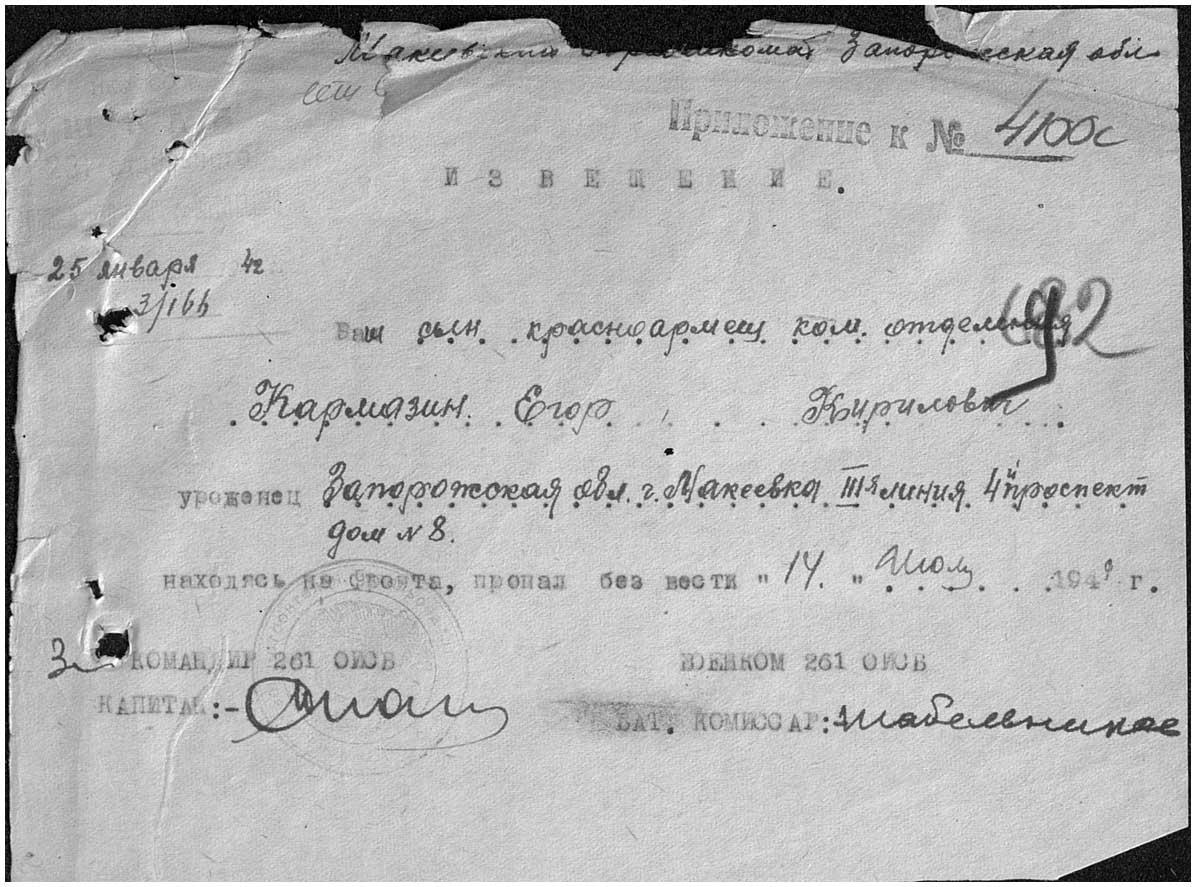 Макеевский Запорожская обл
Приложение к № 4100с
ИЗВЕЩЕНИЕ.
25 января 42
3/166
682
Ваш сын красноармеец ком. отделения
Кармазин Егор Кирилович
уроженец Запорожская обл. г. Макеевка IIIя линия 4й проспект
дом № 8.
находясь на фронта, пропал без вести "14." Июля 194 г.
За КОМАНДИР 261 ОИСБ ВОЕНКОМ 261 ОИСБ
КАПИТАН:- БАТ. КОМИССАР: Шабельников